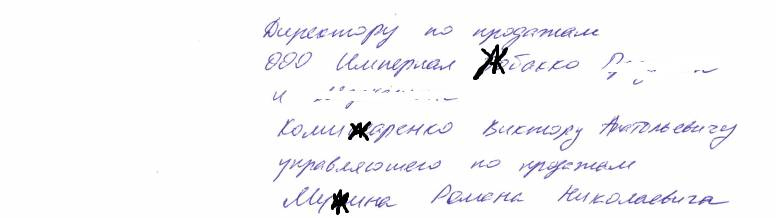 Директору по продажам
ООО Империал Жобакко
и
Комижаренко Виктору Анатольевичу
управляющего по продажам
Мужина Романа Николаевича